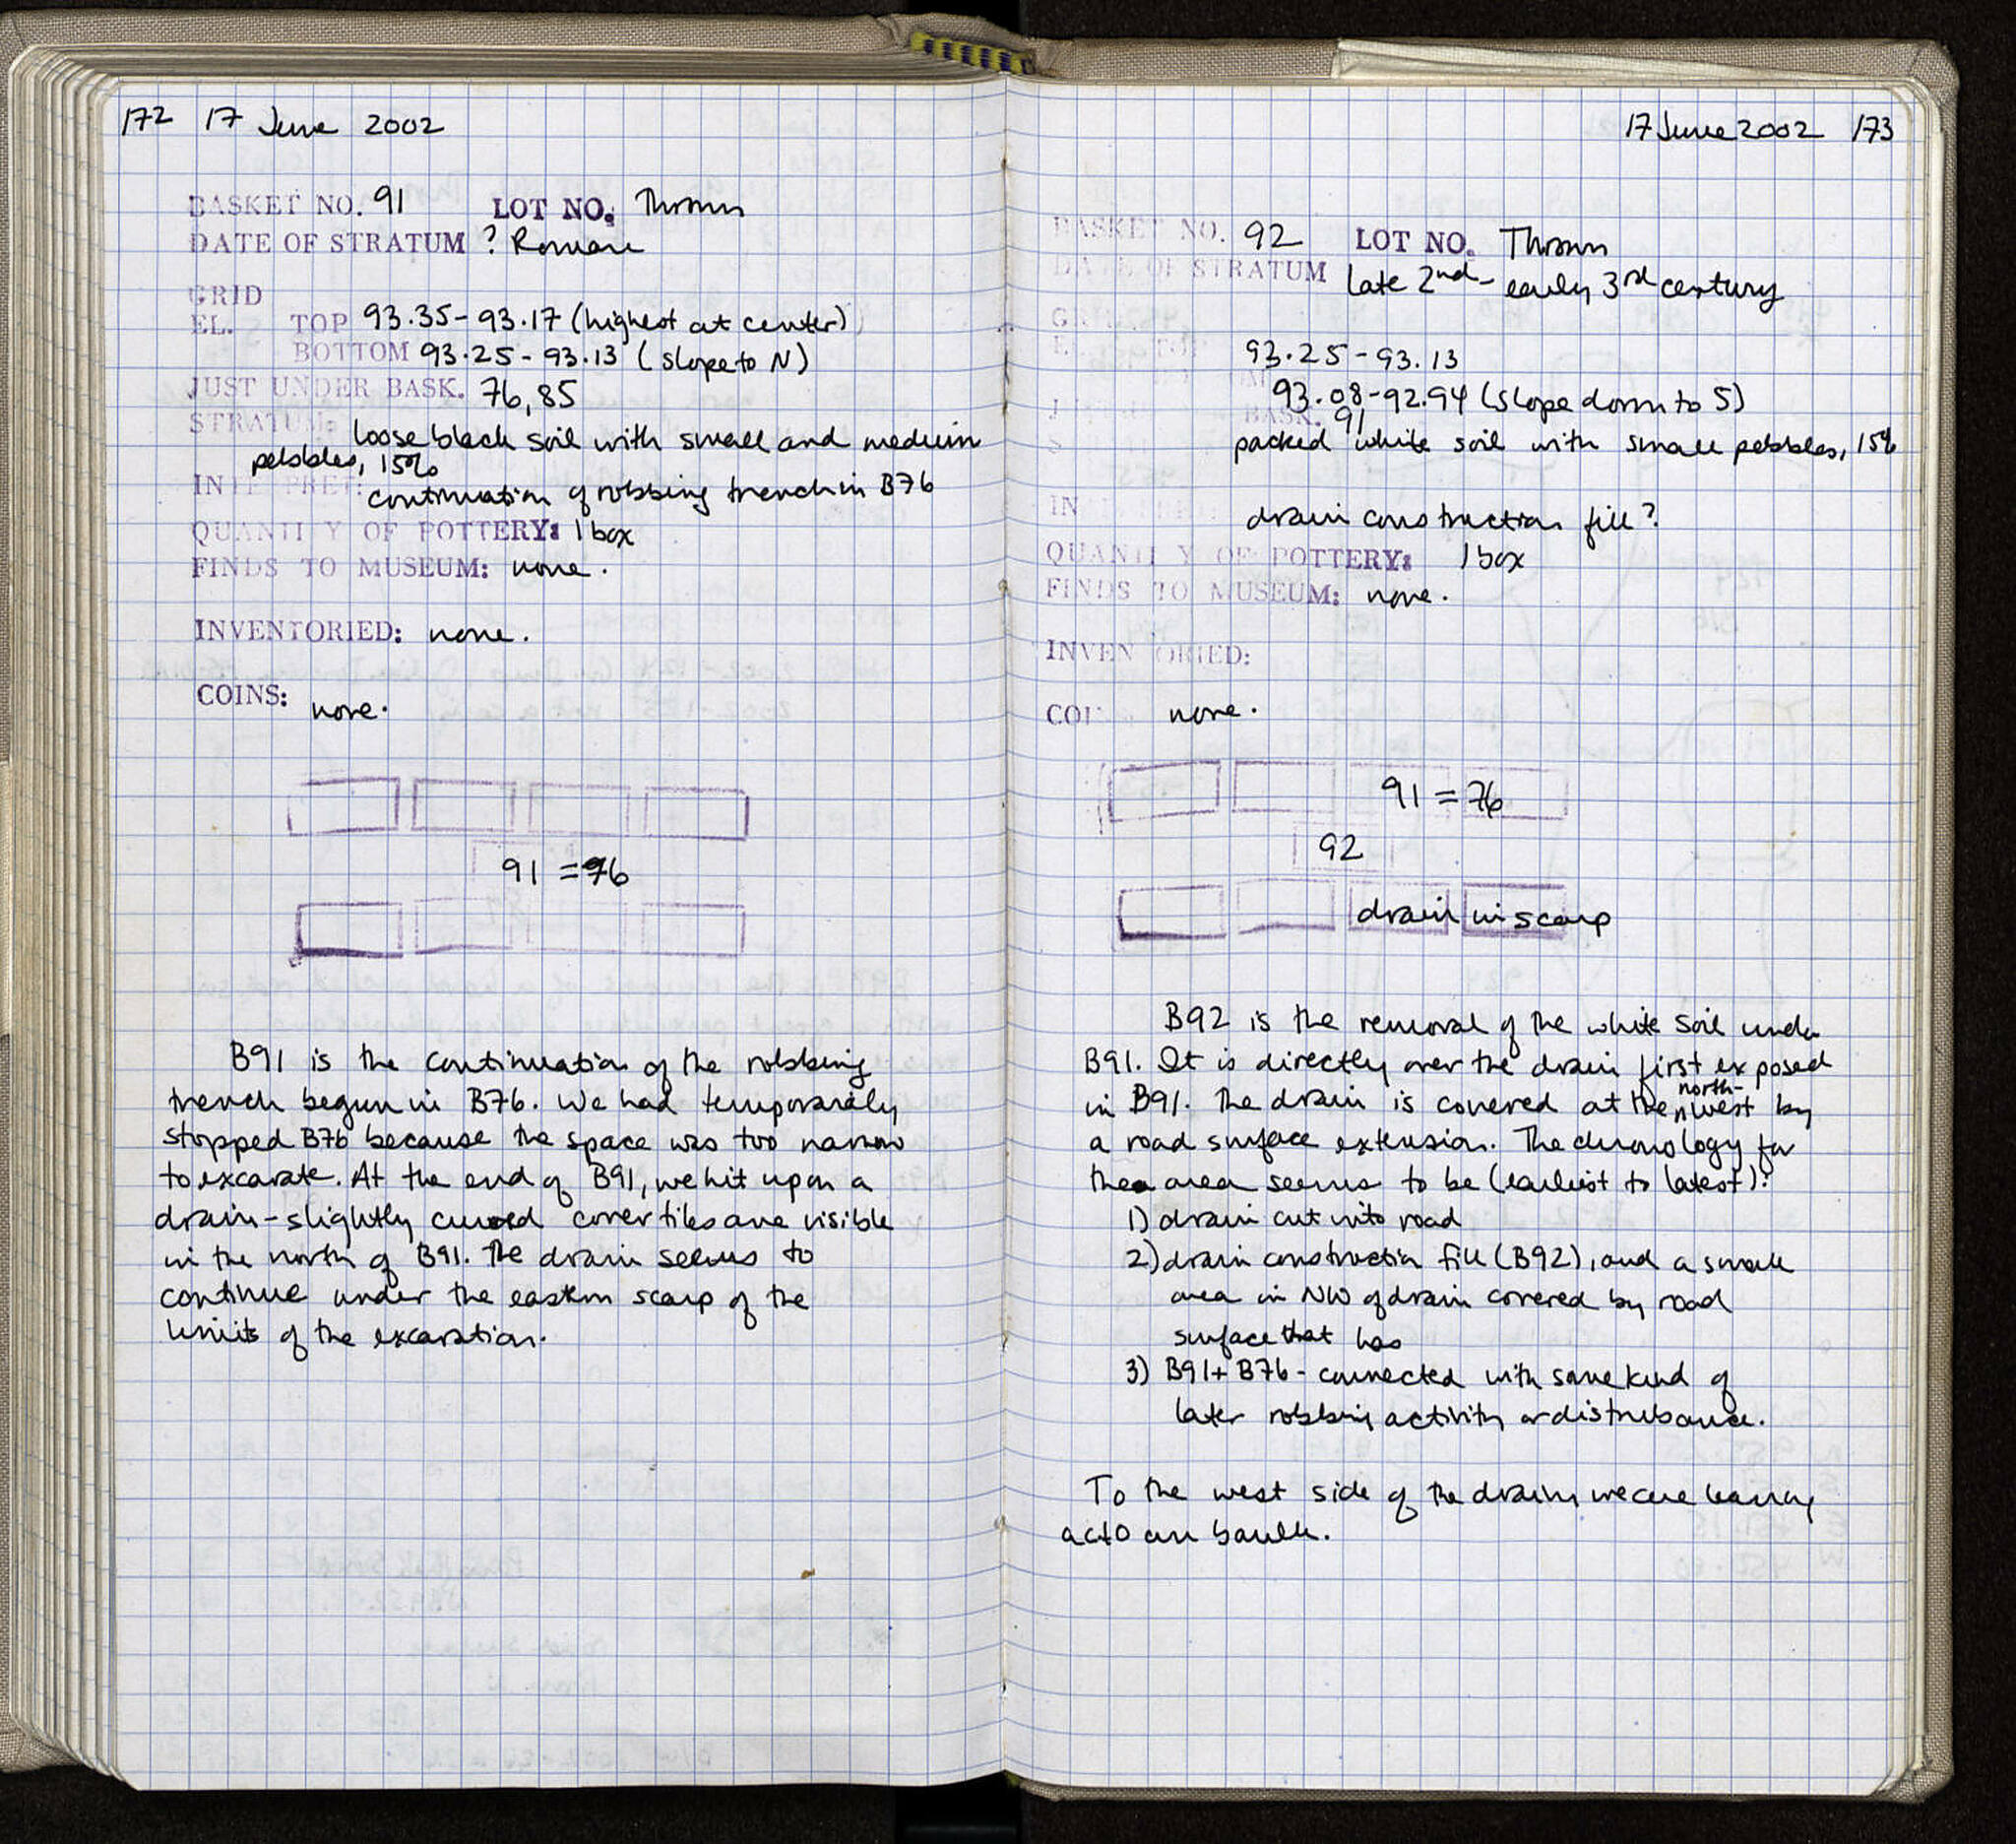 172 17 June 2002
BASKET NO. 91 LOT NO. Thrown
DATE OF STRATUM ? Roman
GRID
EL. TOP 93.35-93.17 (highest at center)
BOTTOM 93.25-93.13 (slope to N)
JUST UNDER BASK. 76,85
STRATUM: loose black soil with small and medium
pebbles, 15%
INTERPRET: continuation of robbing trench in B76
QUANTITY OF POTTERY: 1 box
FINDS TO MUSEUM: none.
INVENTORIED: none.
COINS: none.
91 = 76
B91 is the continuation of the robbing
trench begun in B76. We had temporarily
stopped B76 because the space was too narrow
to excavate. At the end of B91, we hit upon a
drain - slightly curved cover tiles are visible
in the north of B91. The drain seems to
continue under the eastern scarp of the
limits of the excavation.
17 June 2002 173
BASKET NO. 92 LOT NO. Thrown
DATE OF STRATUM late 2nd - early 3rd century
93.25-93.13
93.08-92.94 (slope down to S)
BASK. 91
packed white soil with small pebbles, 15%
drain construction fill?
QUANTITY OF POTTERY: 1 box
FINDS TO MUSEUM: none.
INVENTORIED:
COINS none.
91 = 76
92
drain in scarp
B92 is the removal of the white soil under
B91. It is directly over the drain first exposed
in B91. The drain is covered at the north-west by
a road surface extension. The chronology for
the area seems to be (earliest to latest):
1) drain cut into road
2) drain construction fill (B92), and a small
area in NW of drain covered by road
surface that has
3) B91 + B76 - connected with some kind of
later robbing activity or disturbance.
To the west side of the drain, we are leaving
an baulk.